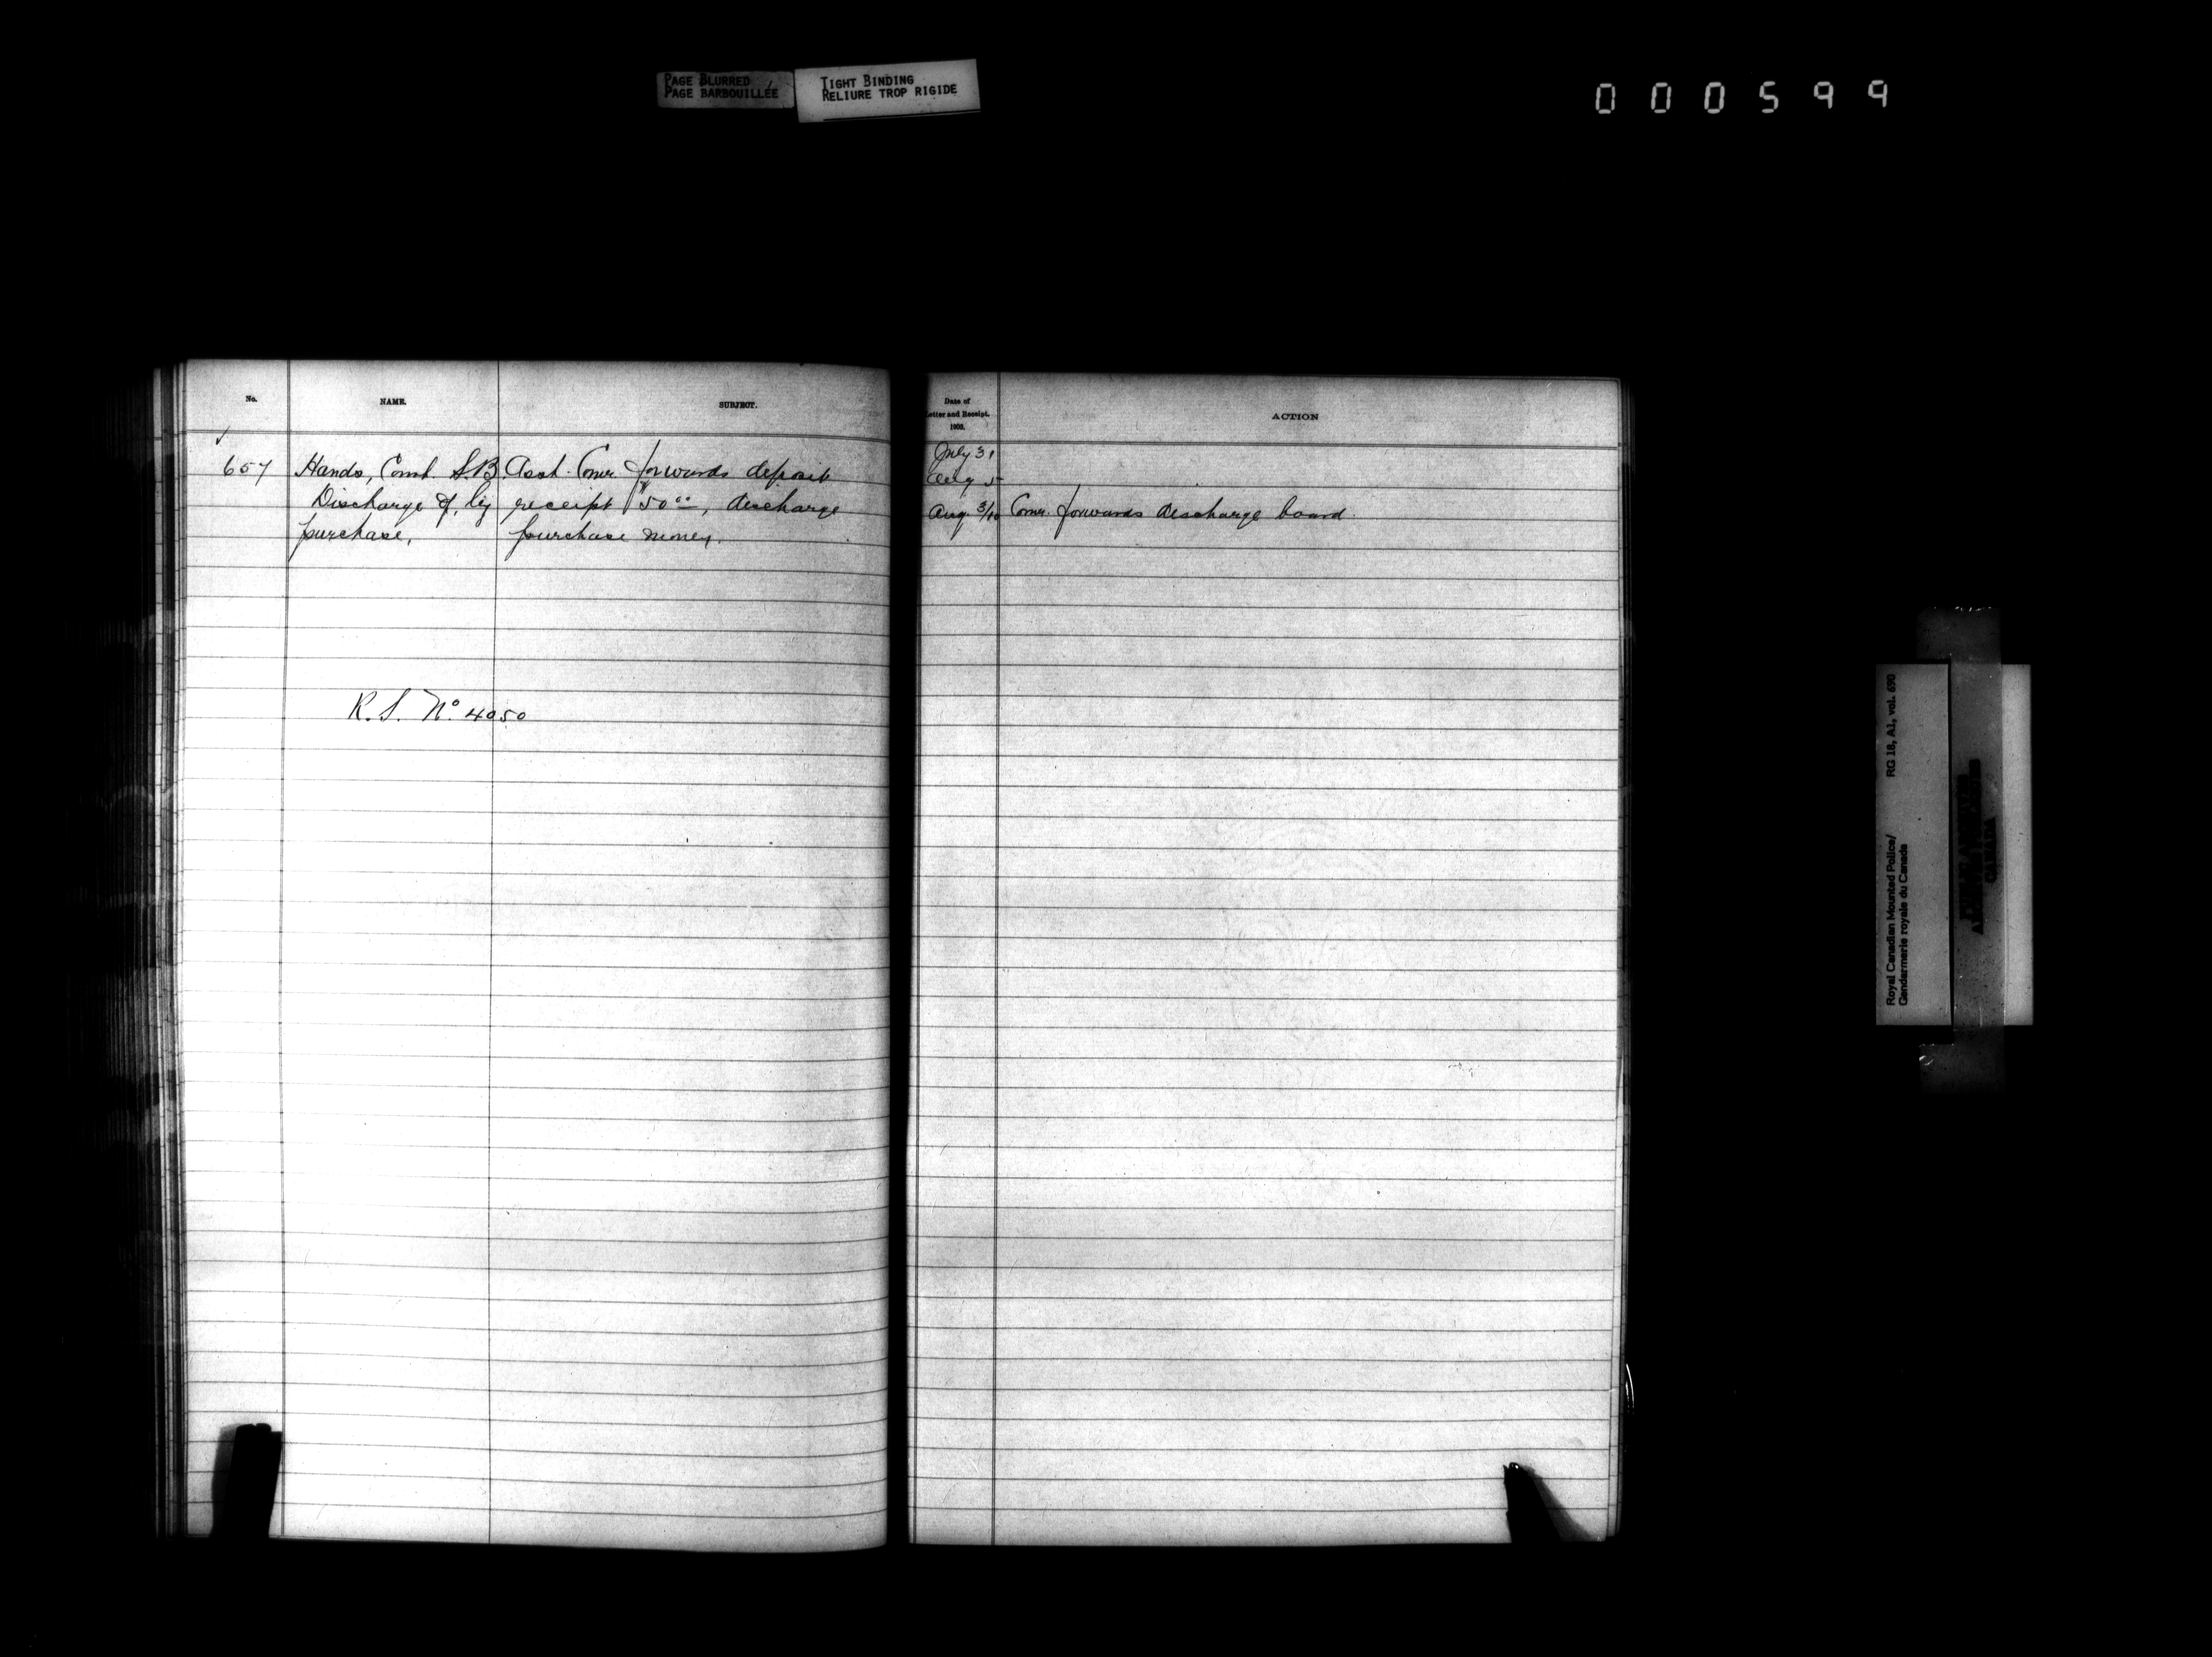 PAGE BLURRED
PAGE BARBOUILLÉE
TIGHT BINDING
RELIURE TROP RIGIDE
000599
No.
NAME.
SUBJECT.
657
Hands, Const. S.B.
Discharge of, by
purchase,
Asst. Comr. forwards deposit
receipt $50.00, discharge
purchase money.
R.S. No. 4050
Date of
Letter and Receipt.
1903.
ACTION
July 31
Aug 5
Aug. 3/10 Comr. forwards discharge board.
Royal Canadian Mounted Police/
Gendarmerie royale du Canada
RG 18, A1, vol. 690
CANADA